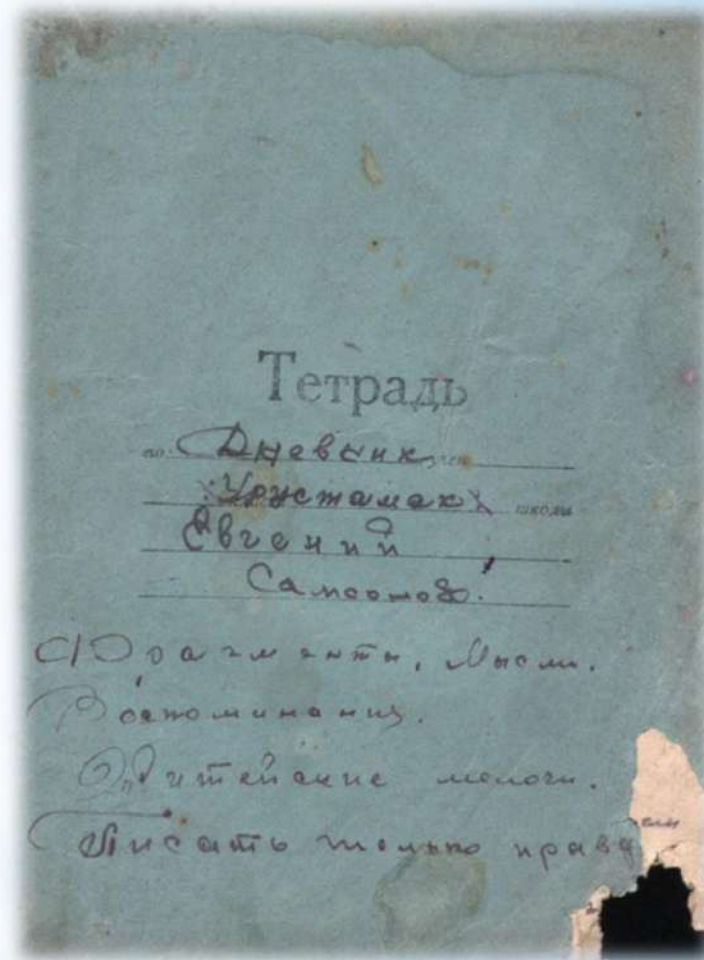 Тетрадь
по Дневник
Урустамак школы
Евгений
Самсонов.
Фрагменты, Мысли.
Воспоминания.
Житейские мелочи.
Писать только правд